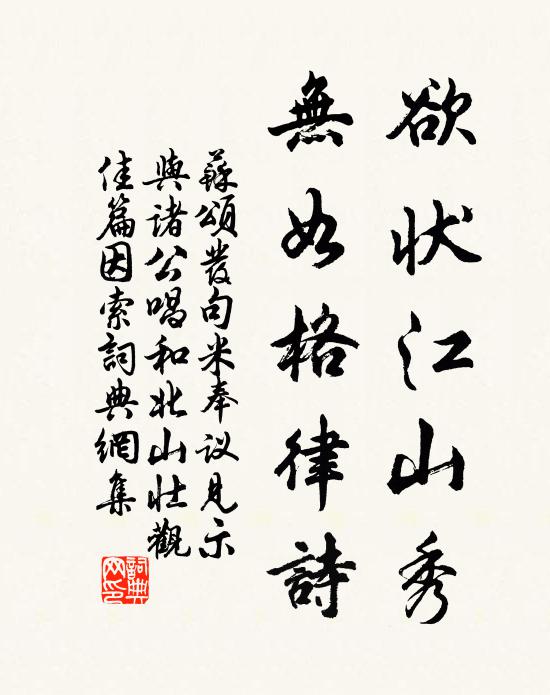 欲状江山秀
無如格律詩
蘇頌發句米奉议見示
與諸公唱和北山壯觀
佳篇因索詞典網集
詞典网印